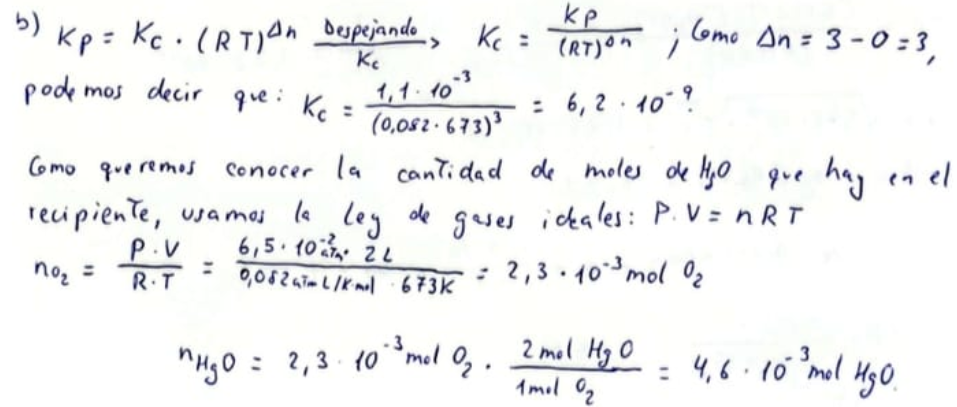 b) Kp = Kc · (RT)^Δn Despejando/Kc → Kc = Kp/(RT)^Δn ; Como Δn = 3 - 0 = 3,
podemos decir que: Kc = 1,1 · 10^-3/(0,082 · 673)^3 = 6,2 · 10^-9.
Como queremos conocer la cantidad de moles de HgO que hay en el
recipiente, usamos la Ley de gases ideales: P · V = n R T
nO₂ = P · V/R · T = 6,5 · 10^-2 atm · 2 L/0,082 atm L/K mol · 673K = 2,3 · 10^-3 mol O₂
nHgO = 2,3 · 10^-3 mol O₂ · 2 mol HgO/1 mol O₂ = 4,6 · 10^-3 mol HgO.